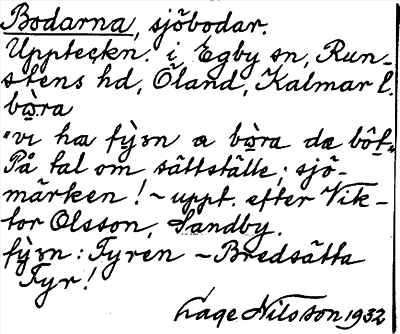 Bodarna, sjöbodar.
Uppteckn. i Egby sn, Run-
stens hd, Öland, Kalmar l.
"vi ha
På tal om sättställe; sjö-
märken! ~ uppt. efter Vik-
tor Olsson, Sandby.
Fyren ~ Bredsätta
Fyr!
Lage Nilsson 1932